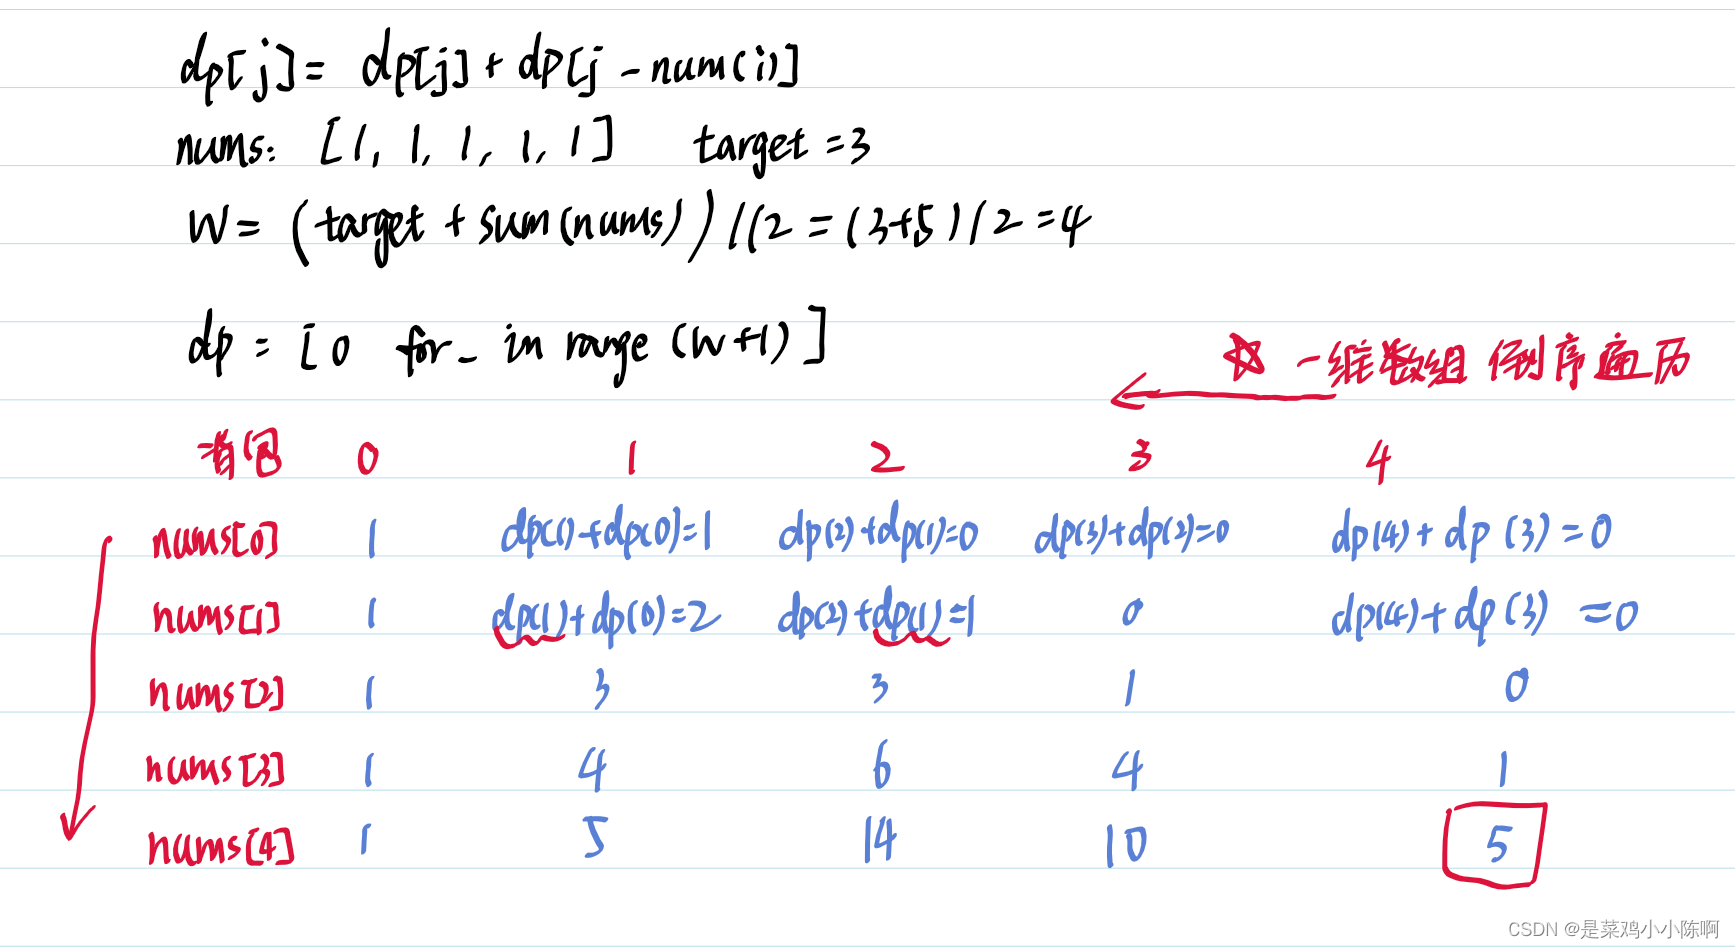 dp[j] = dp[j] + dp[j - num(i)]
nums: [1, 1, 1, 1, 1] target = 3
W = (target + sum(nums)) //2 = (3+5) / 2 = 4
dp = [0 for _ in range (W+1)]
☆ 一维数组 倒序遍历
背包 0 1 2 3 4
nums[0] 1 dp(1)+dp(0)=1 dp(2)+dp(1)=0 dp(3)+dp(2)=0 dp(4)+dp(3)=0
nums[1] 1 dp(1)+dp(0)=2 dp(2)+dp(1)=1 0 dp(4)+dp(3)=0
nums[2] 1 3 3 1 0
nums[3] 1 4 6 4 1
nums[4] 1 5 14 10 5
CSDN @是菜鸡小小陈啊